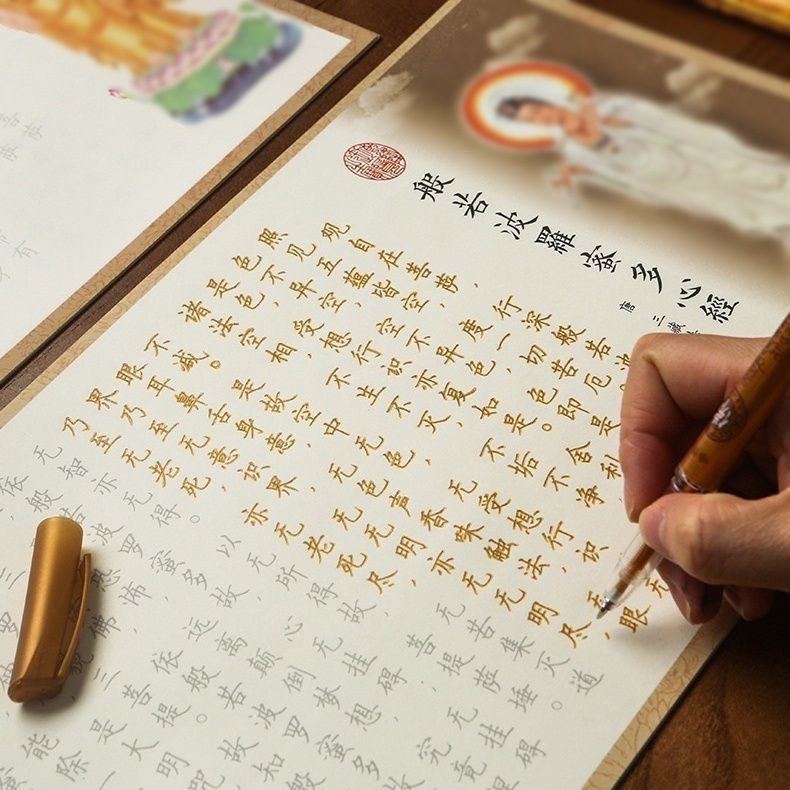 般若波羅蜜多心經
唐 三藏
观自在菩萨，行深般若波
照见五蕴皆空，度一切苦厄。
色不异空，空不异色，色即是
是色，受想行识亦复如是。舍利
诸法空相，不生不灭，不垢不净
不减。是故空中无色，无受想行识
眼耳鼻舌身意，无色声香味触法，无眼
界，乃至无意识界，无无明，亦无无明尽
乃至无老死，亦无老死尽，无苦集灭道
无智亦无得。以无所得故，菩提萨埵
依般若波罗蜜多故，心无挂碍，无挂碍
恐怖，远离颠倒梦想，究竟
三 佛，依般若波罗蜜多故
三菩提。故知般
是大明咒
能除一